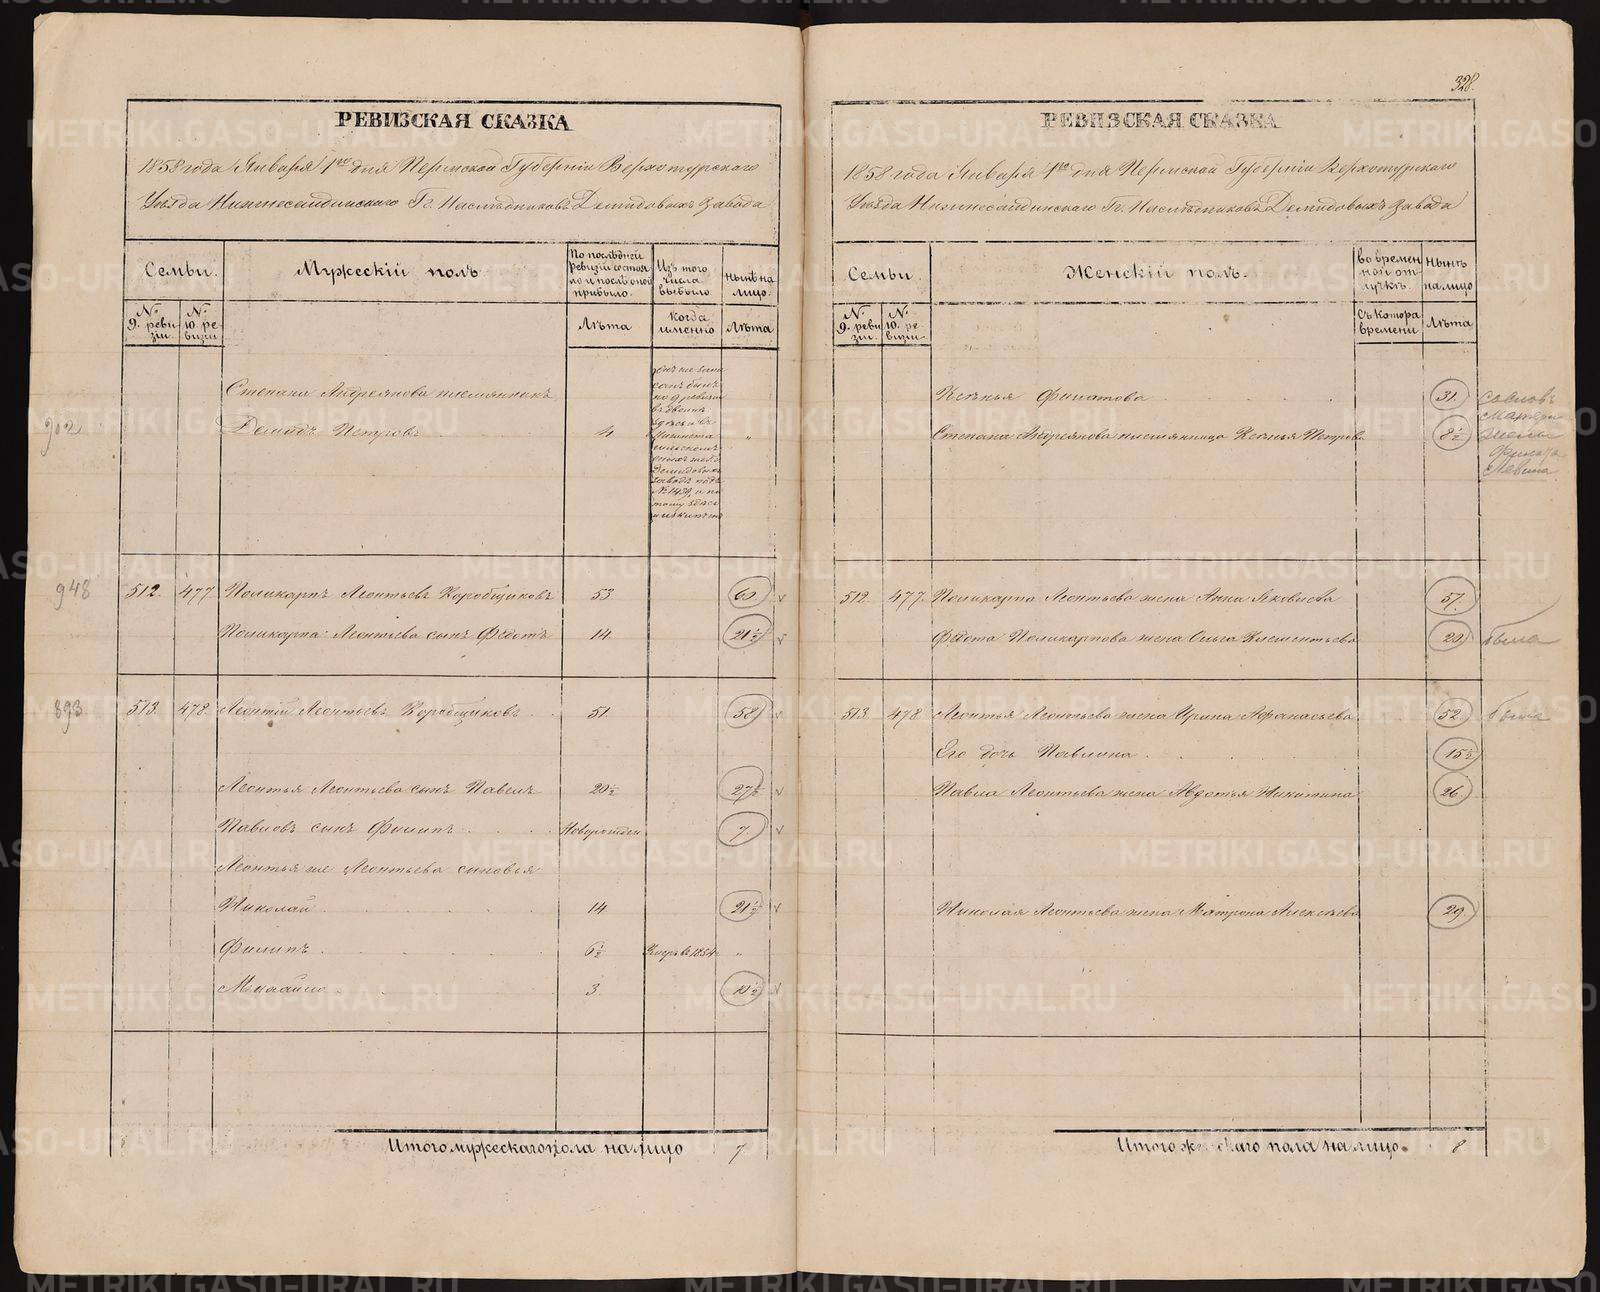 328.
РЕВИЗСКАЯ СКАЗКА
1858 года Января 1го дня Пермской Губерніи Верхотурскаго
Уѣзда Нижнесалдинскаго Гг. Наслѣдниковъ Демидовыхъ Завода
Семьи.
Мужескій полъ
По послѣдней
ревизіи состоя
ло и послѣ оной
прибыло.
Изъ того
числа
выбыло
Нынѣ на
лицо.
№
9. реви
зіи.
№
10. ре
визіи
Лѣта
Когда
именно
Лѣта
902
Степана Андреянова племянникъ
Демидъ Петровъ 4 "
948 512. 477 Поликарпъ Леонтьевъ Коробщиковъ 53 60.
Поликарпа Леонтьева сынъ Федотъ 14. 21½
893 513. 478. Леонтій Леонтьевъ Коробщиковъ 51. 58
Леонтья Леонтьева сынъ Павелъ 20½ 27½
Павловъ сынъ Филипъ Новорожден 7.
Леонтья же Леонтьева сыновья
Николай 14 21½
Филипъ 6½ Умеръ въ 1854 "
Михайло 3. 10½
Итого мужескаго пола на лицо 7
РЕВИЗСКАЯ СКАЗКА
1858 года Января 1го дня Пермской Губерніи Верхотурскаго
Уѣзда Нижнесалдинскаго Гг. Наслѣдниковъ Демидовыхъ Завода
Семьи.
Женскій полъ.
Во времен
ной от
лучкѣ.
Нынѣ
на лицо
№
9. реви
зіи.
№
10. ре
визіи
Съ котора
времени
Лѣта
Ксенья Филатова 31.
Степана Андреянова племянница Ксенья Петрова 8½
512. 477. Поликарпа Леонтьева жена Анна Яковлева 57.
Федота Поликарпова жена Ольга Клементьева 20
513. 478 Леонтья Леонтьева жена Ирина Афанасьева 52.
Его дочь Павлина 15½
Павла Леонтьева жена Авдотья Никитина 26.
Николая Леонтьева жена Матрона Алексѣева 20.
Итого женскаго пола на лицо. 8
METRIKI.GASO-URAL.RU